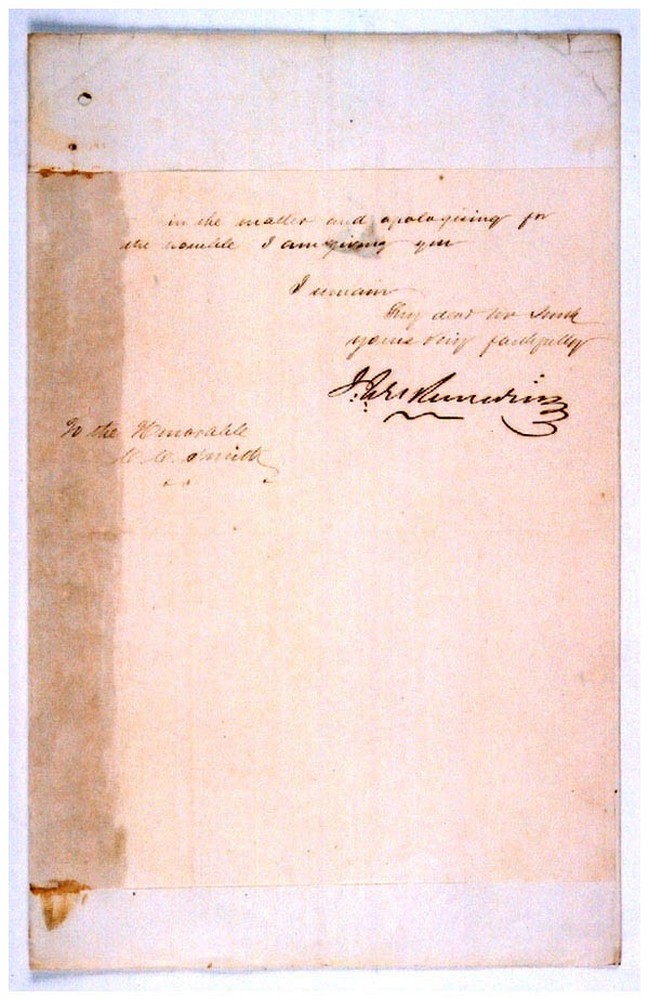 in the matter and apologising for
the trouble I am giving you
I remain
My dear Sir Smith
yours very faithfully
To the Honorable
Smith